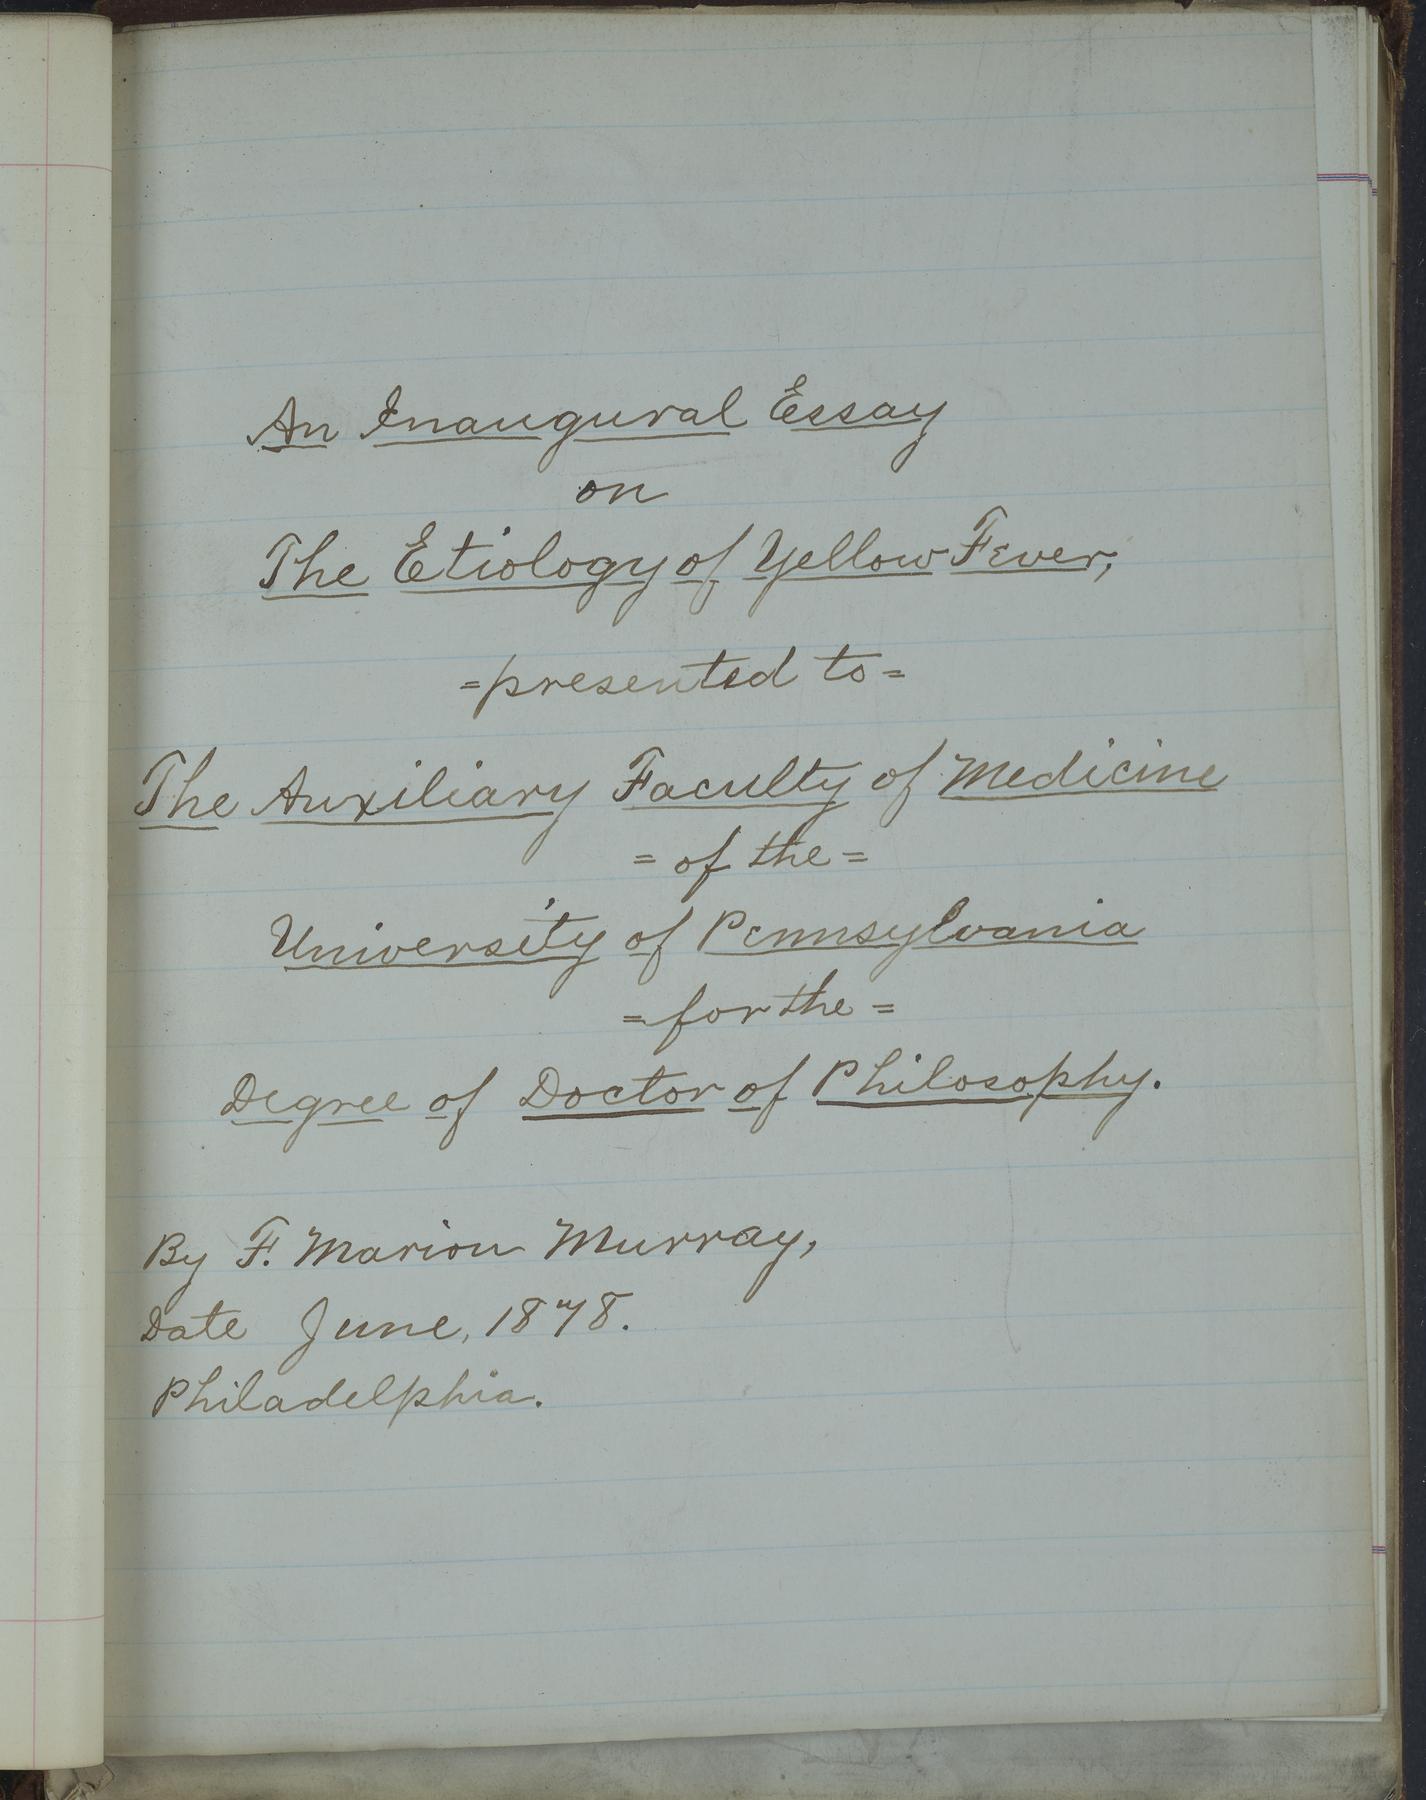 An Inaugural Essay
on
The Etiology of Yellow Fever,
=presented to=
The Auxiliary Faculty of Medicine
= of the =
University of Pennsylvania
= for the =
Degree of Doctor of Philosophy.
By F. Marion Murray,
Date June, 1878.
Philadelphia.